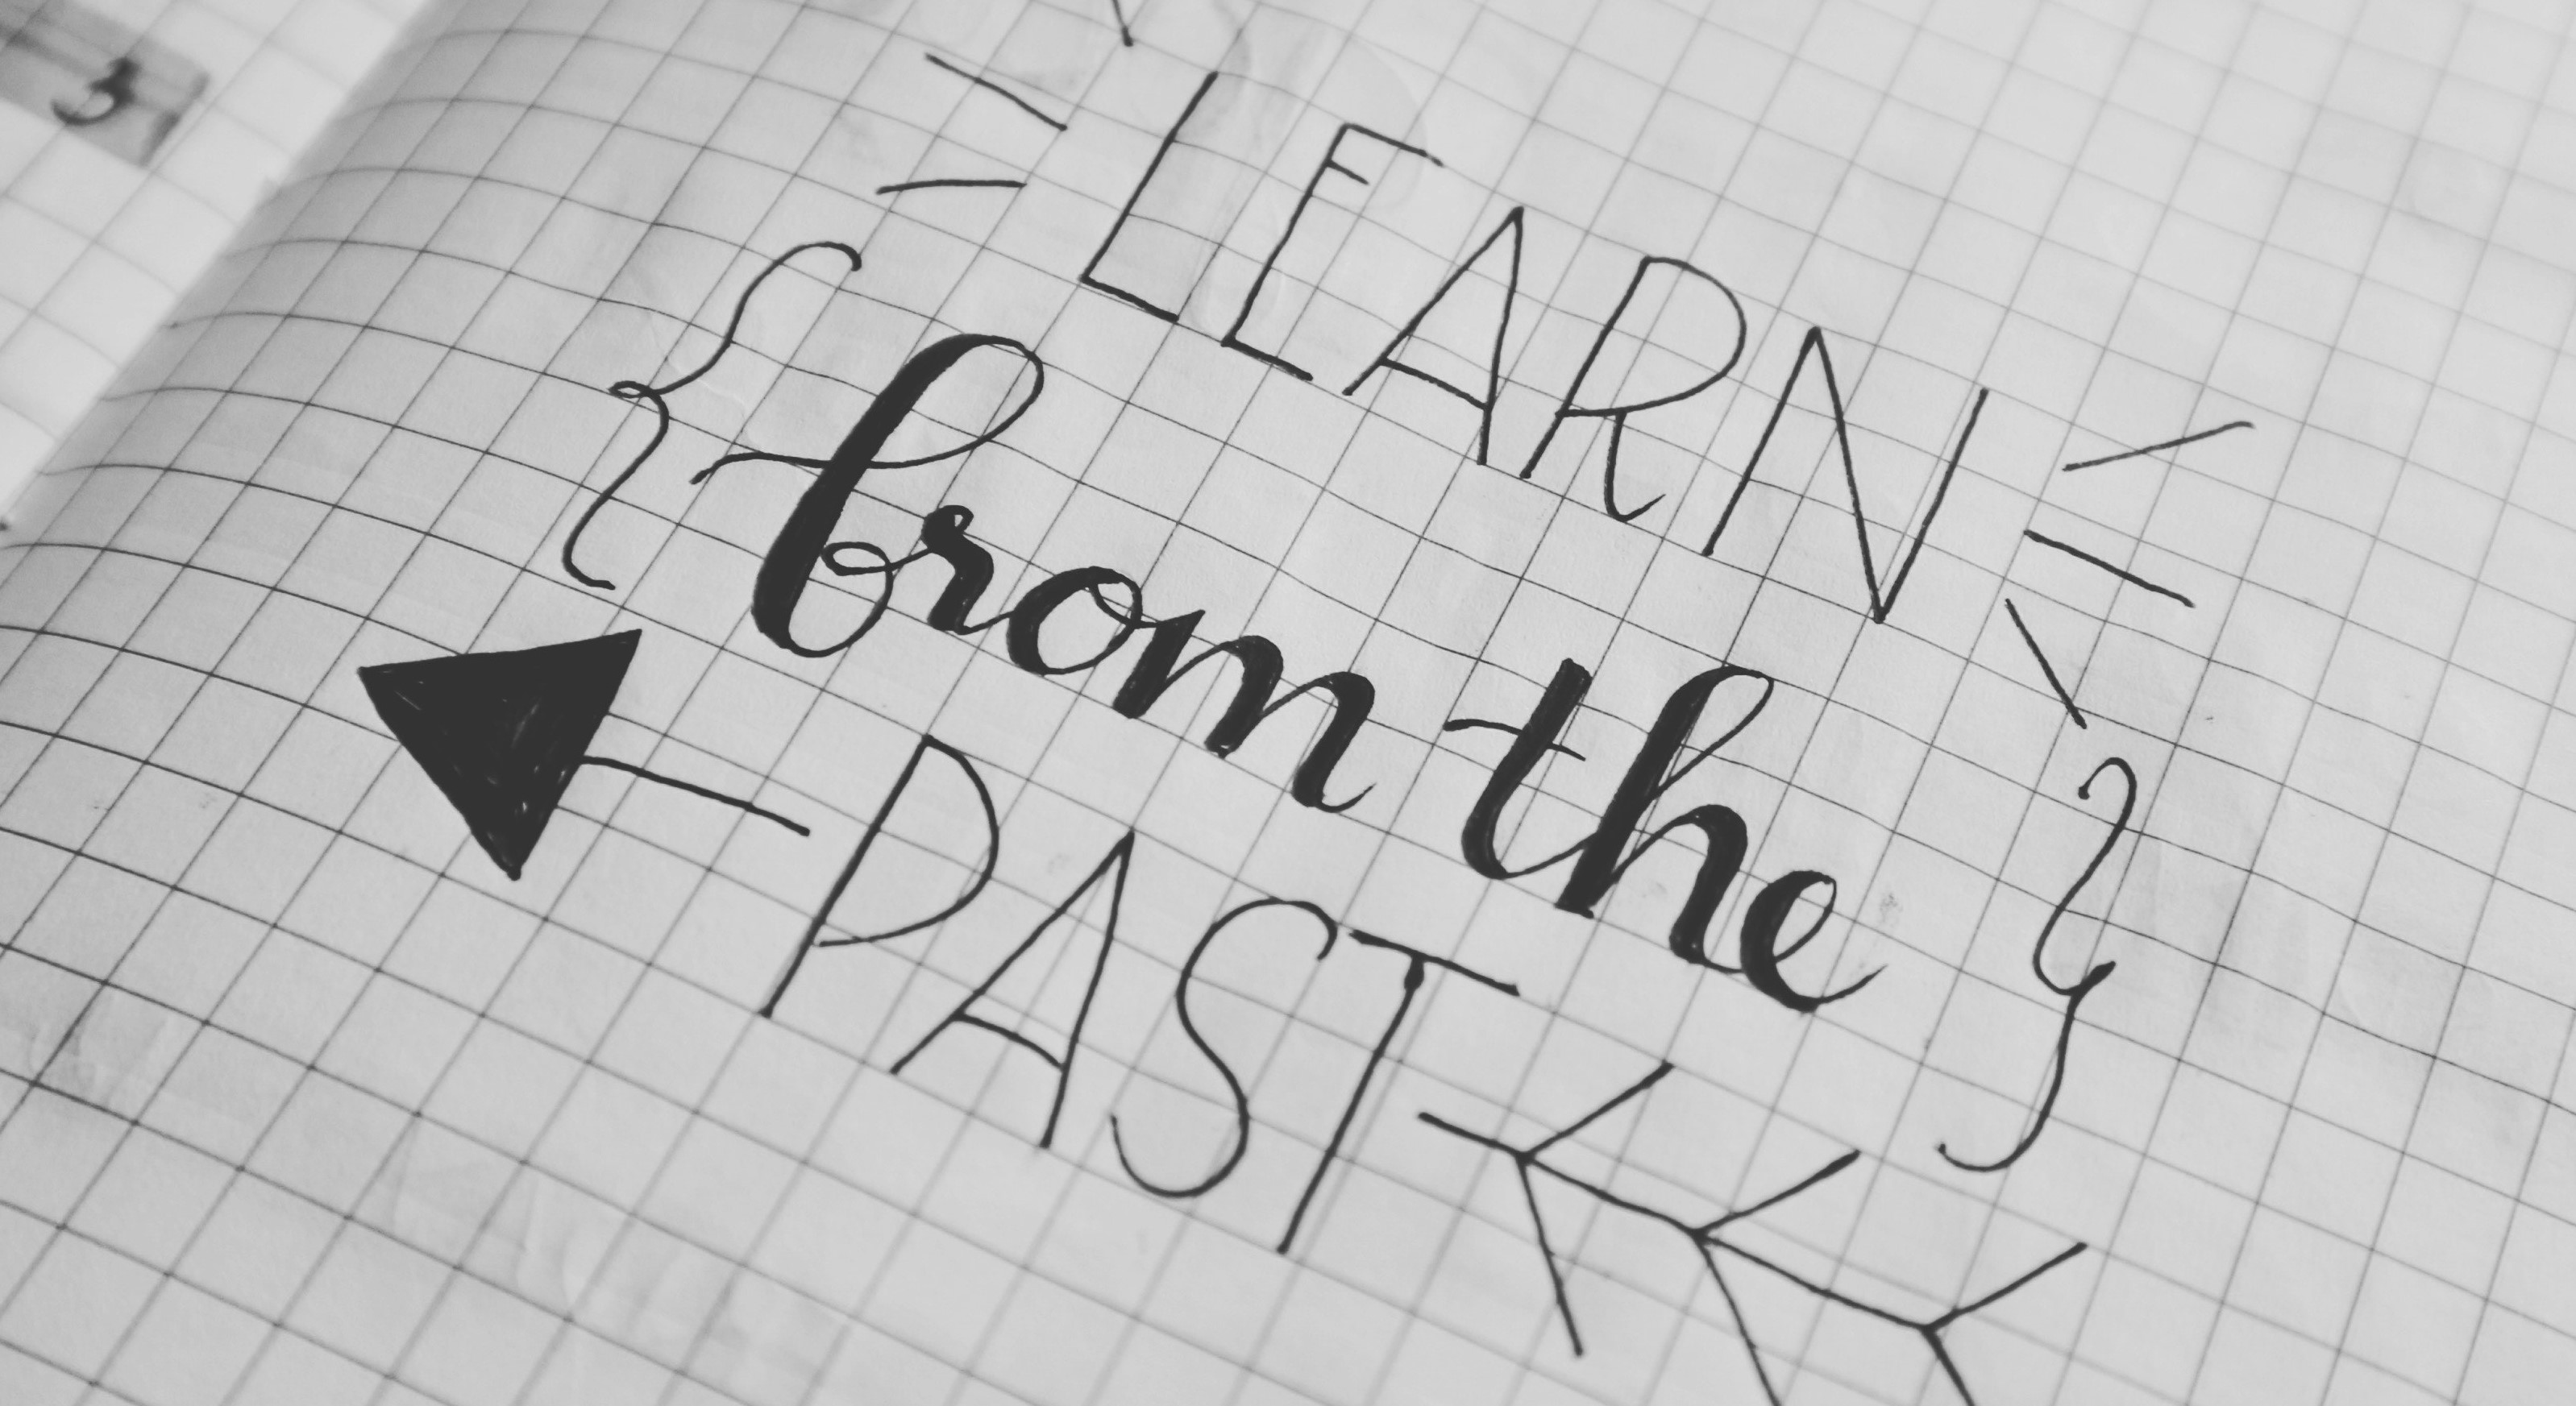 3
LEARN
from the
PAST